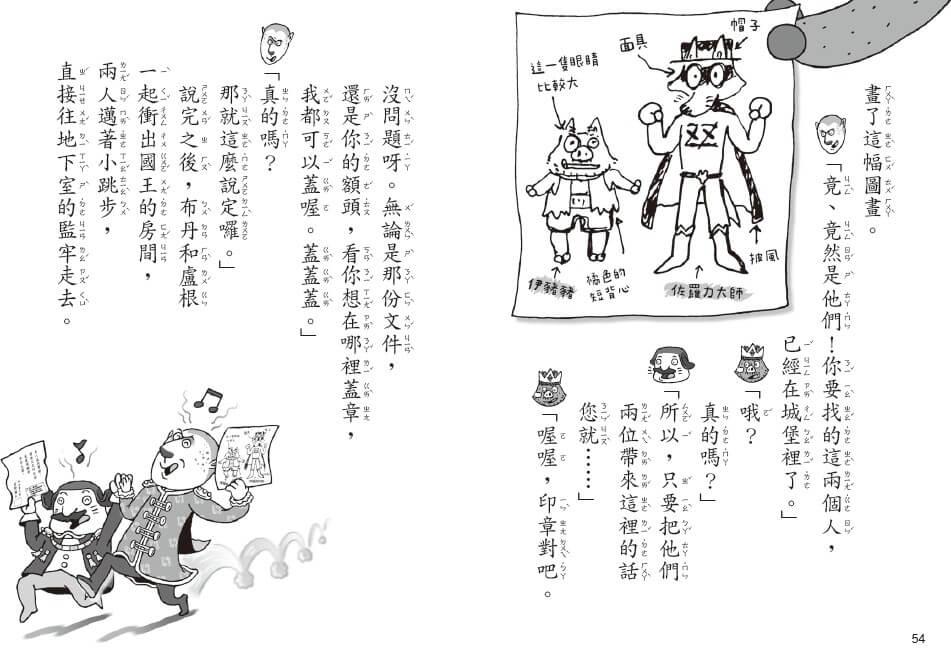 畫了這幅圖畫。
「竟、竟然是他們！你要找的這兩個人，
已經在城堡裡了。」
「哦？
真的嗎？」
「所以，只要把他們
兩位帶來這裡的話
您就……」
「喔喔，印章對吧。
帽子
面具
這一隻眼睛
比較大
披風
橘色的
短背心
伊豬豬
佐羅力大師
ZZ
54
沒問題呀。無論是那份文件，
還是你的額頭，看你想在哪裡蓋章，
我都可以蓋喔。蓋蓋蓋。」
「真的嗎？
那就這麼說定囉。」
說完之後，布丹和盧根
一起衝出國王的房間，
兩人邁著小跳步，
直接往地下室的監牢走去。